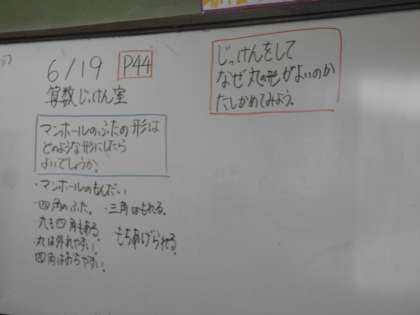 6/19 P44
算数じっけん室
マンホールのふたの形は
どのような形にしたら
よいでしょうか。
・マンホールのもんだい
・四角のふた。 ・三角はもれる。
丸も四角もある。
丸は外れやすい。 もちあげられる。
四角はおちやすい。
じっけんをして
なぜ丸の形がよいのか
たしかめてみよう。